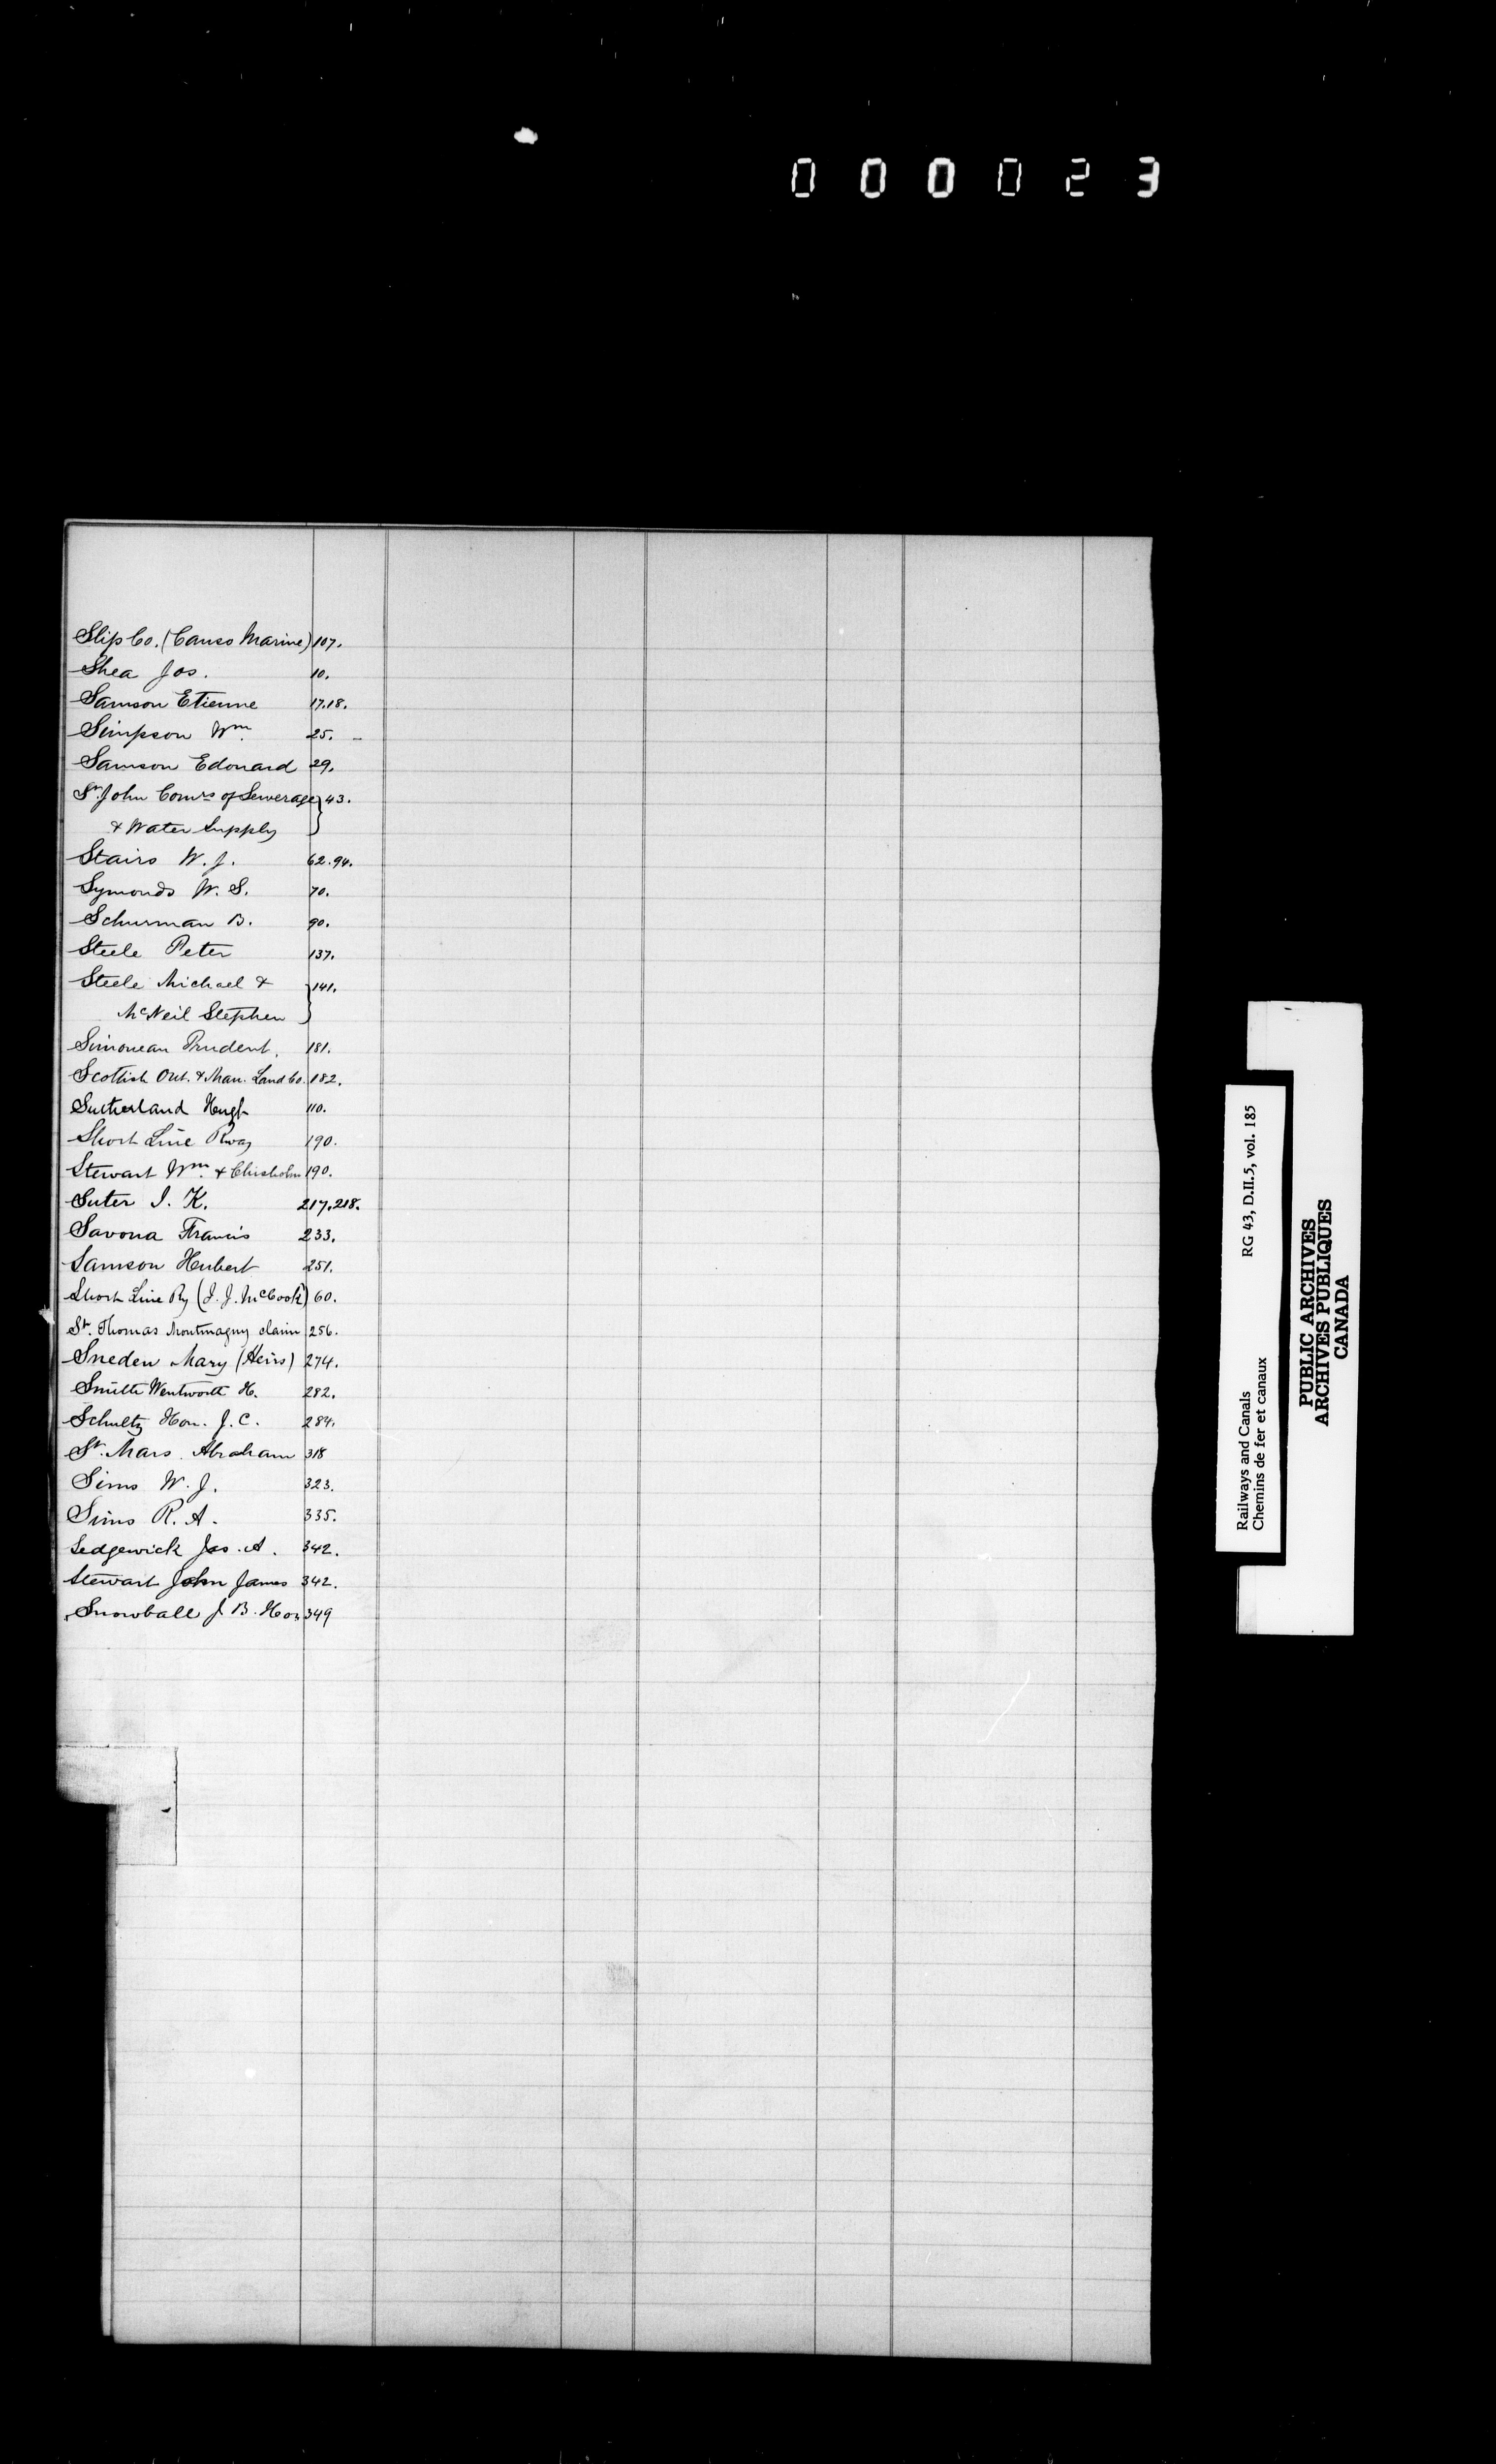 000023
Slip Co. (Canso Marine) 107.
Shea Jos. 10.
Samson Etienne 17.18.
Simpson Wm. 25. –
Samson Edouard 29.
St. John Comrs of Sewerage } 43.
& Water Supply
Stairs W. J. 62.94.
Symonds W. S. 70.
Schurman B. 90.
Steele Peter 137.
Steele Michael & } 141.
McNeil Stephen
Simoneau Prudent. 181.
Scottish Ont. & Man. Land Co. 182.
Sutherland Hugh 110.
Short Line Rway 190.
Stewart Wm. & Chisholm 190.
Suter I. K. 217.218.
Savona Francis 233.
Samson Hubert 251.
Short Line Ry (J. J. McCook) 60.
St. Thomas Montmagny claim 256.
Sneden Mary (Heirs) 274.
Smith Wentworth H. 282.
Schultz Hon. J. C. 284.
St. Mars. Abraham 318
Sims W. J. 323.
Sims R. A. 335.
Sedgewick Jas. A. 342.
Stewart John James 342.
Snowball J B. Hon 349
Railways and Canals RG 43, D.II.5, vol. 185
Chemins de fer et canaux
PUBLIC ARCHIVES
ARCHIVES PUBLIQUES
CANADA